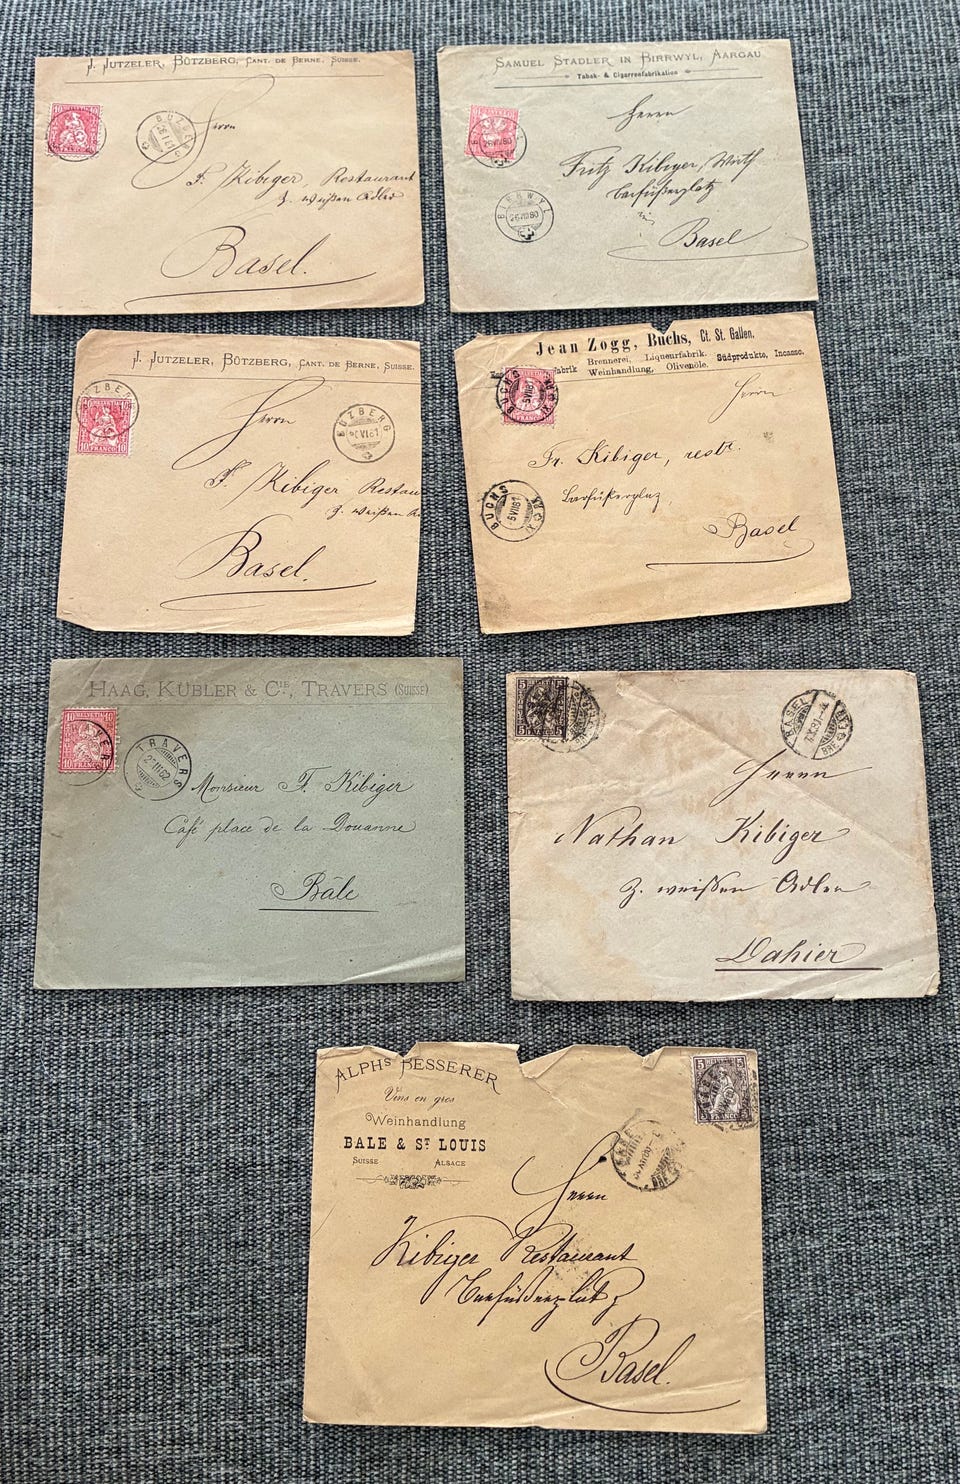 J. JUTZELER, BÜTZBERG, CANT. DE BERNE, SUISSE.
10 HELVETIA 10
FRANCO
BÜTZBERG
Herrn
F. Kibiger, Restaurant
z. weißen Adler
Basel.
SAMUEL STADLER IN BIRRWYL, AARGAU
Tabak- & Cigarrenfabrikation
26 VII 80
BIRRWYL
26 VII 80
Herrn
Fritz Kibiger, Wirth
Barfüßerplatz
in
Basel
J. JUTZELER, BÜTZBERG, CANT. DE BERNE, SUISSE.
BÜTZBERG
10 FRANCO 10
BÜTZBERG
VI 81
Herrn
F. Kibiger Restau
z. weißen A
Basel.
Jean Zogg, Buchs, Ct. St. Gallen.
Brennerei, Liqueurfabrik. Südprodukte, Incasso.
fabrik Weinhandlung, Olivenöle.
BUCHS
5 VII 81
BUCHS
5 VII 81
Herrn
Fr. Kibiger, restr.
Barfüßerplaz
Basel
HAAG, KÜBLER & CIE, TRAVERS (SUISSE)
10 HELVETIA 10
10 FRANCO 10
TRAVERS
III 82
Monsieur F. Kibiger
Café place de la Douanne
Bâle
5 HELVETIA 5
5 FRANCO 5
BASEL
Herrn
Nathan Kibiger
z. weissen Adler
Dahier
ALPHS BESSERER
Vins en gros
Weinhandlung
BALE & ST LOUIS
SUISSE ALSACE
5 HELVETIA 5
5 FRANCO 5
BASEL
Herrn
Kibiger Restaurant
Barfüßerplatz
Basel.